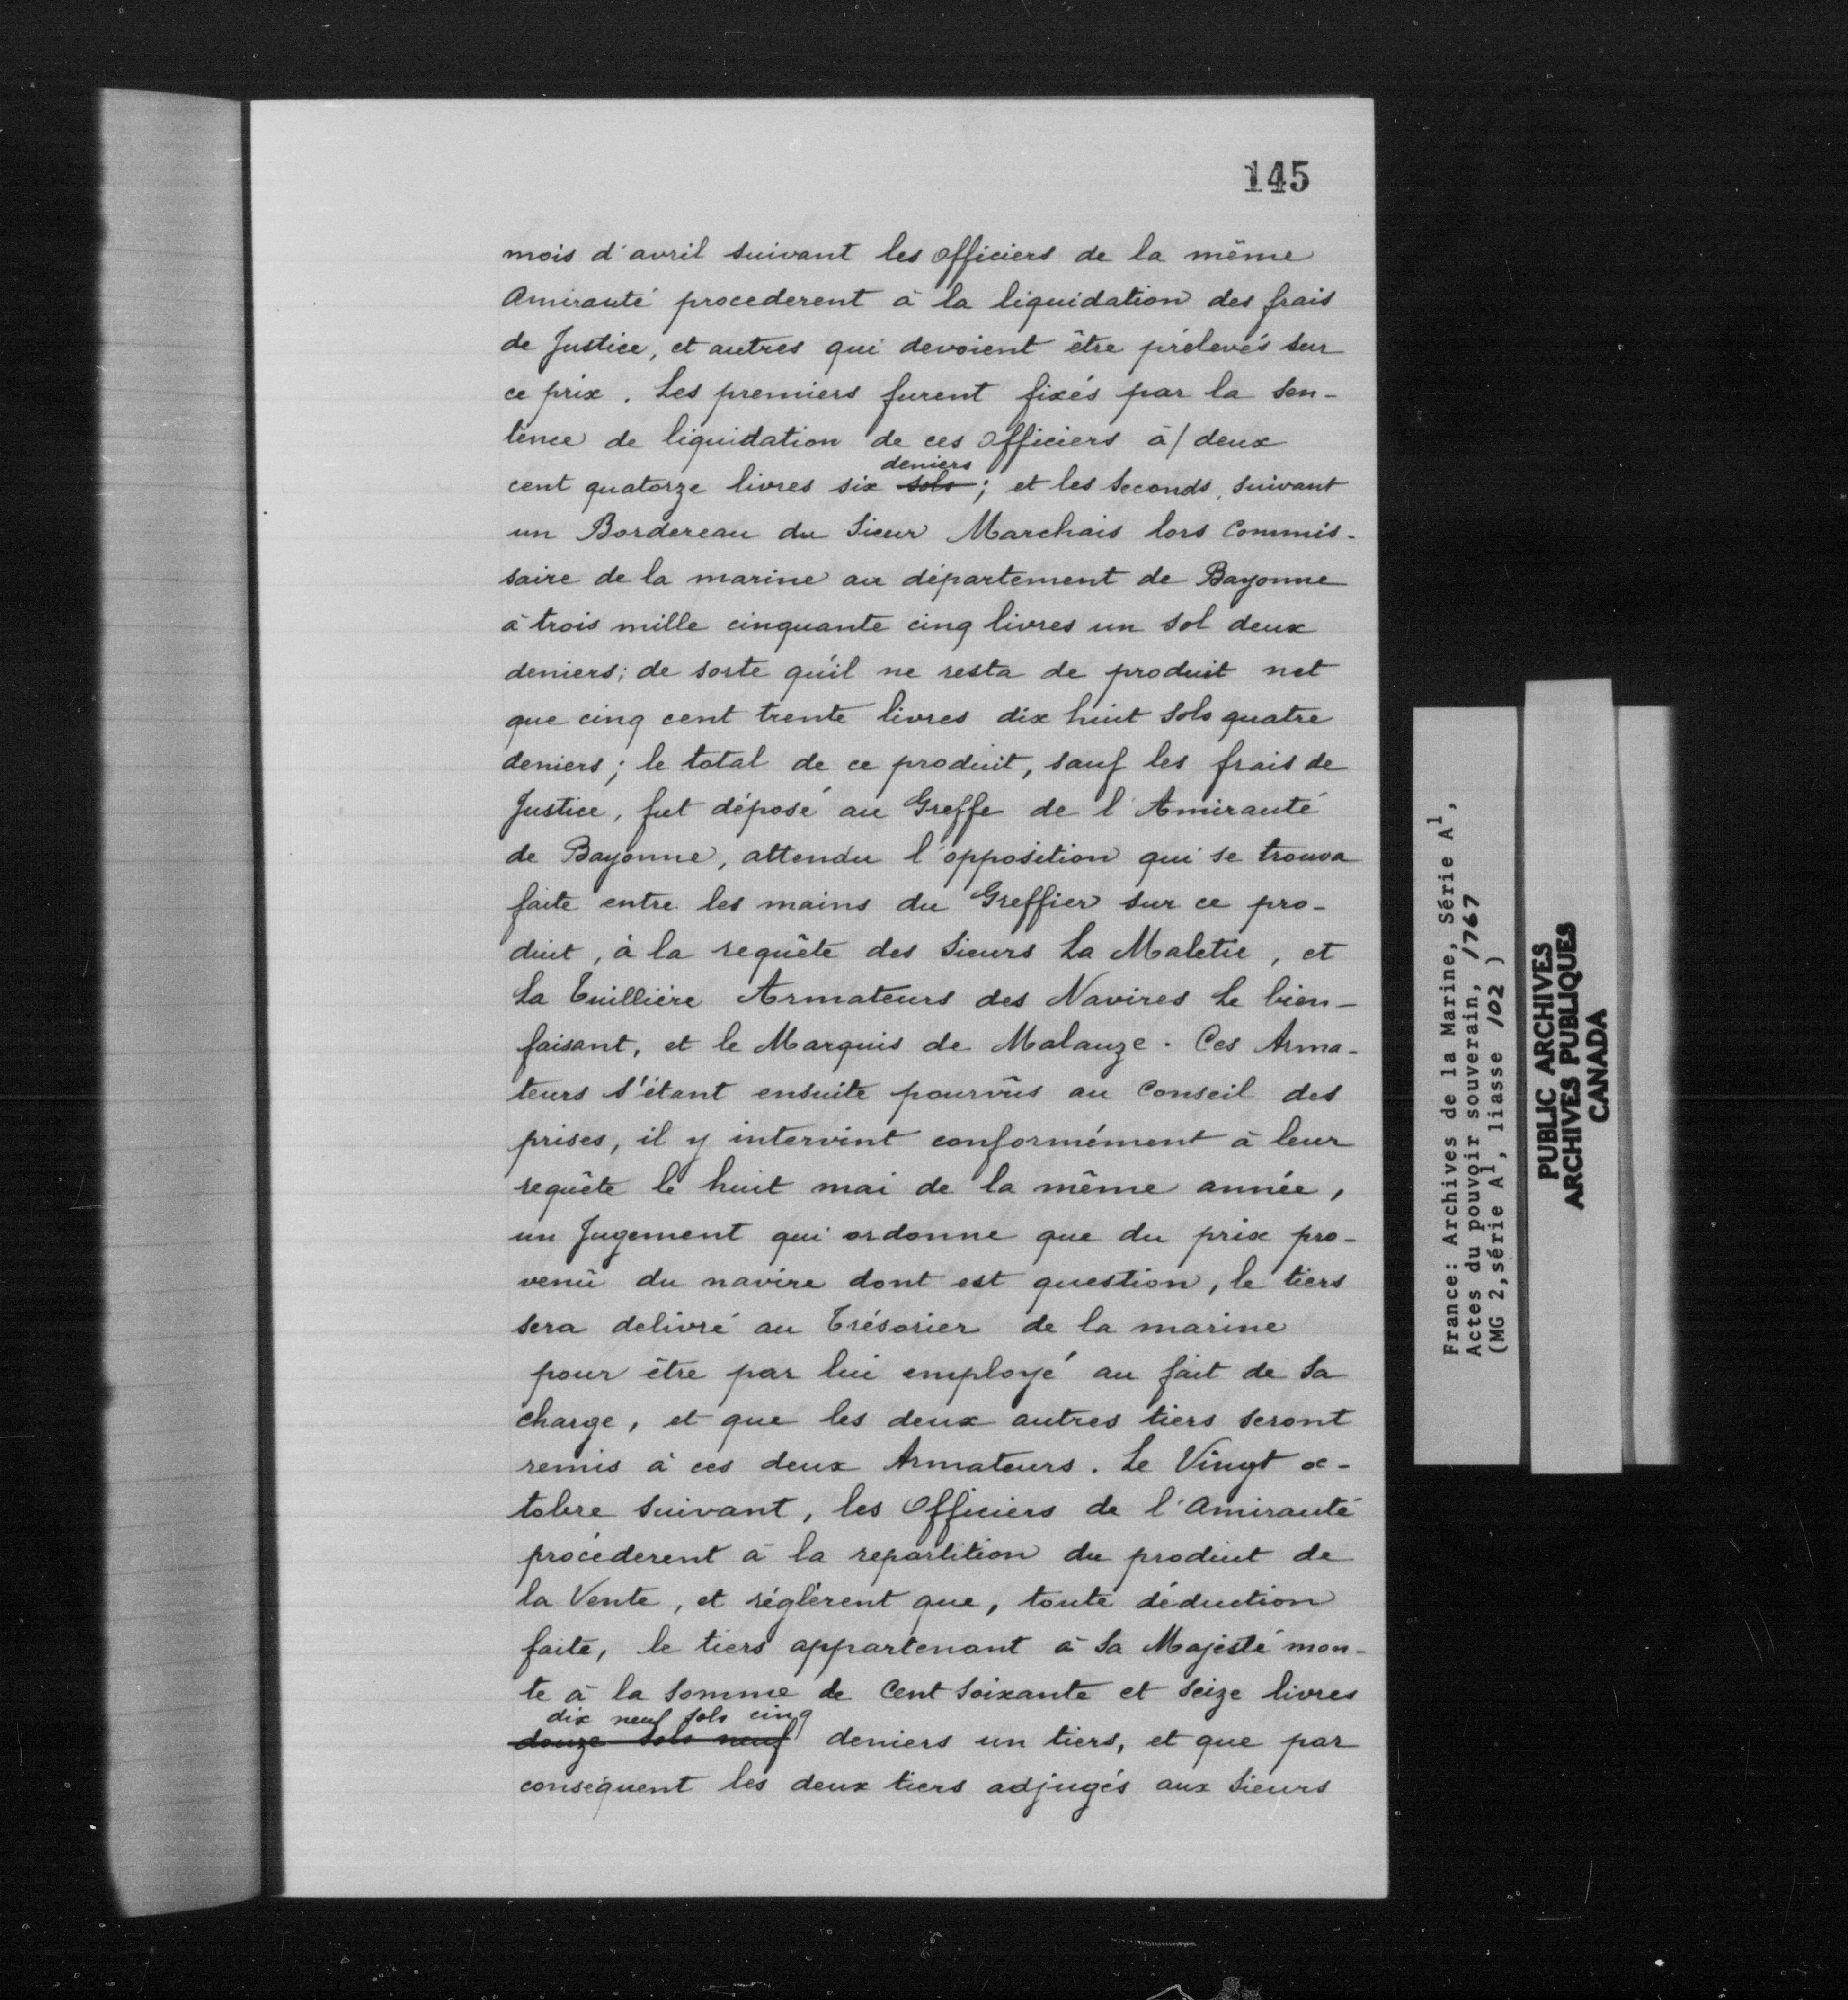 145
mois d'avril suivant les officiers de la même
Amirauté procederent à la liquidation des frais
de Justice, et autres qui devoient être prélevés sur
ce prix. Les premiers furent fixés par la sen-
tence de liquidation de ces officiers à/ deux
deniers
cent quatorze livres six sols ; et les seconds, suivant
un Bordereau du Sieur Marchais lors Commis-
saire de la marine au département de Bayonne
à trois mille cinquante cinq livres un sol deux
deniers; de sorte qu'il ne resta de produit net
que cinq cent trente livres dix huit sols quatre
deniers; le total de ce produit, sauf les frais de
Justice, fut déposé au Greffe de l'Amirauté
de Bayonne, attendu l'opposition qui se trouva
faite entre les mains du Greffier sur ce pro-
duit, à la requête des Sieurs La Maletie, et
La Tuillière Armateurs des Navires le bien-
faisant, et le Marquis de Malauze. Ces Arma-
teurs s'étant ensuite pourvûs au Conseil des
prises, il y intervint conformément à leur
requête le huit mai de la même année,
un Jugement qui ordonne que du prix pro-
venû du navire dont est question, le tiers
sera delivré au Trésorier de la marine
pour être par lui employé au fait de sa
charge, et que les deux autres tiers seront
remis à ces deux Armateurs. Le Vingt oc-
tobre suivant, les Officiers de l'Amirauté
procéderent à la repartition du produit de
la Vente, et réglèrent que, toute déduction
faite, le tiers appartenant à Sa Majesté mon-
te à la somme de Cent soixante et seize livres
dix neuf sols cinq
douze sols neuf deniers un tiers, et que par
conséquent les deux tiers adjugés aux Sieurs
France: Archives de la Marine, Série A1,
Actes du pouvoir souverain, 1767
(MG 2, série A1, liasse 102 )
PUBLIC ARCHIVES
ARCHIVES PUBLIQUES
CANADA